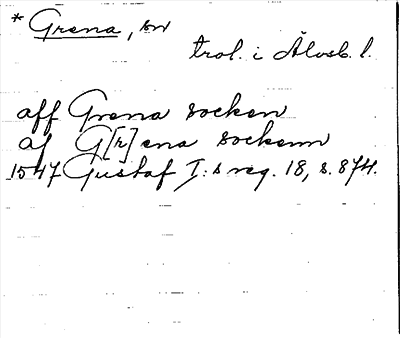 * Grena, sn
trol. i Älvsb. l.
aff Grena socken
af G[r]ena sockenn
1547 Gustaf I:s reg. 18, s. 874.